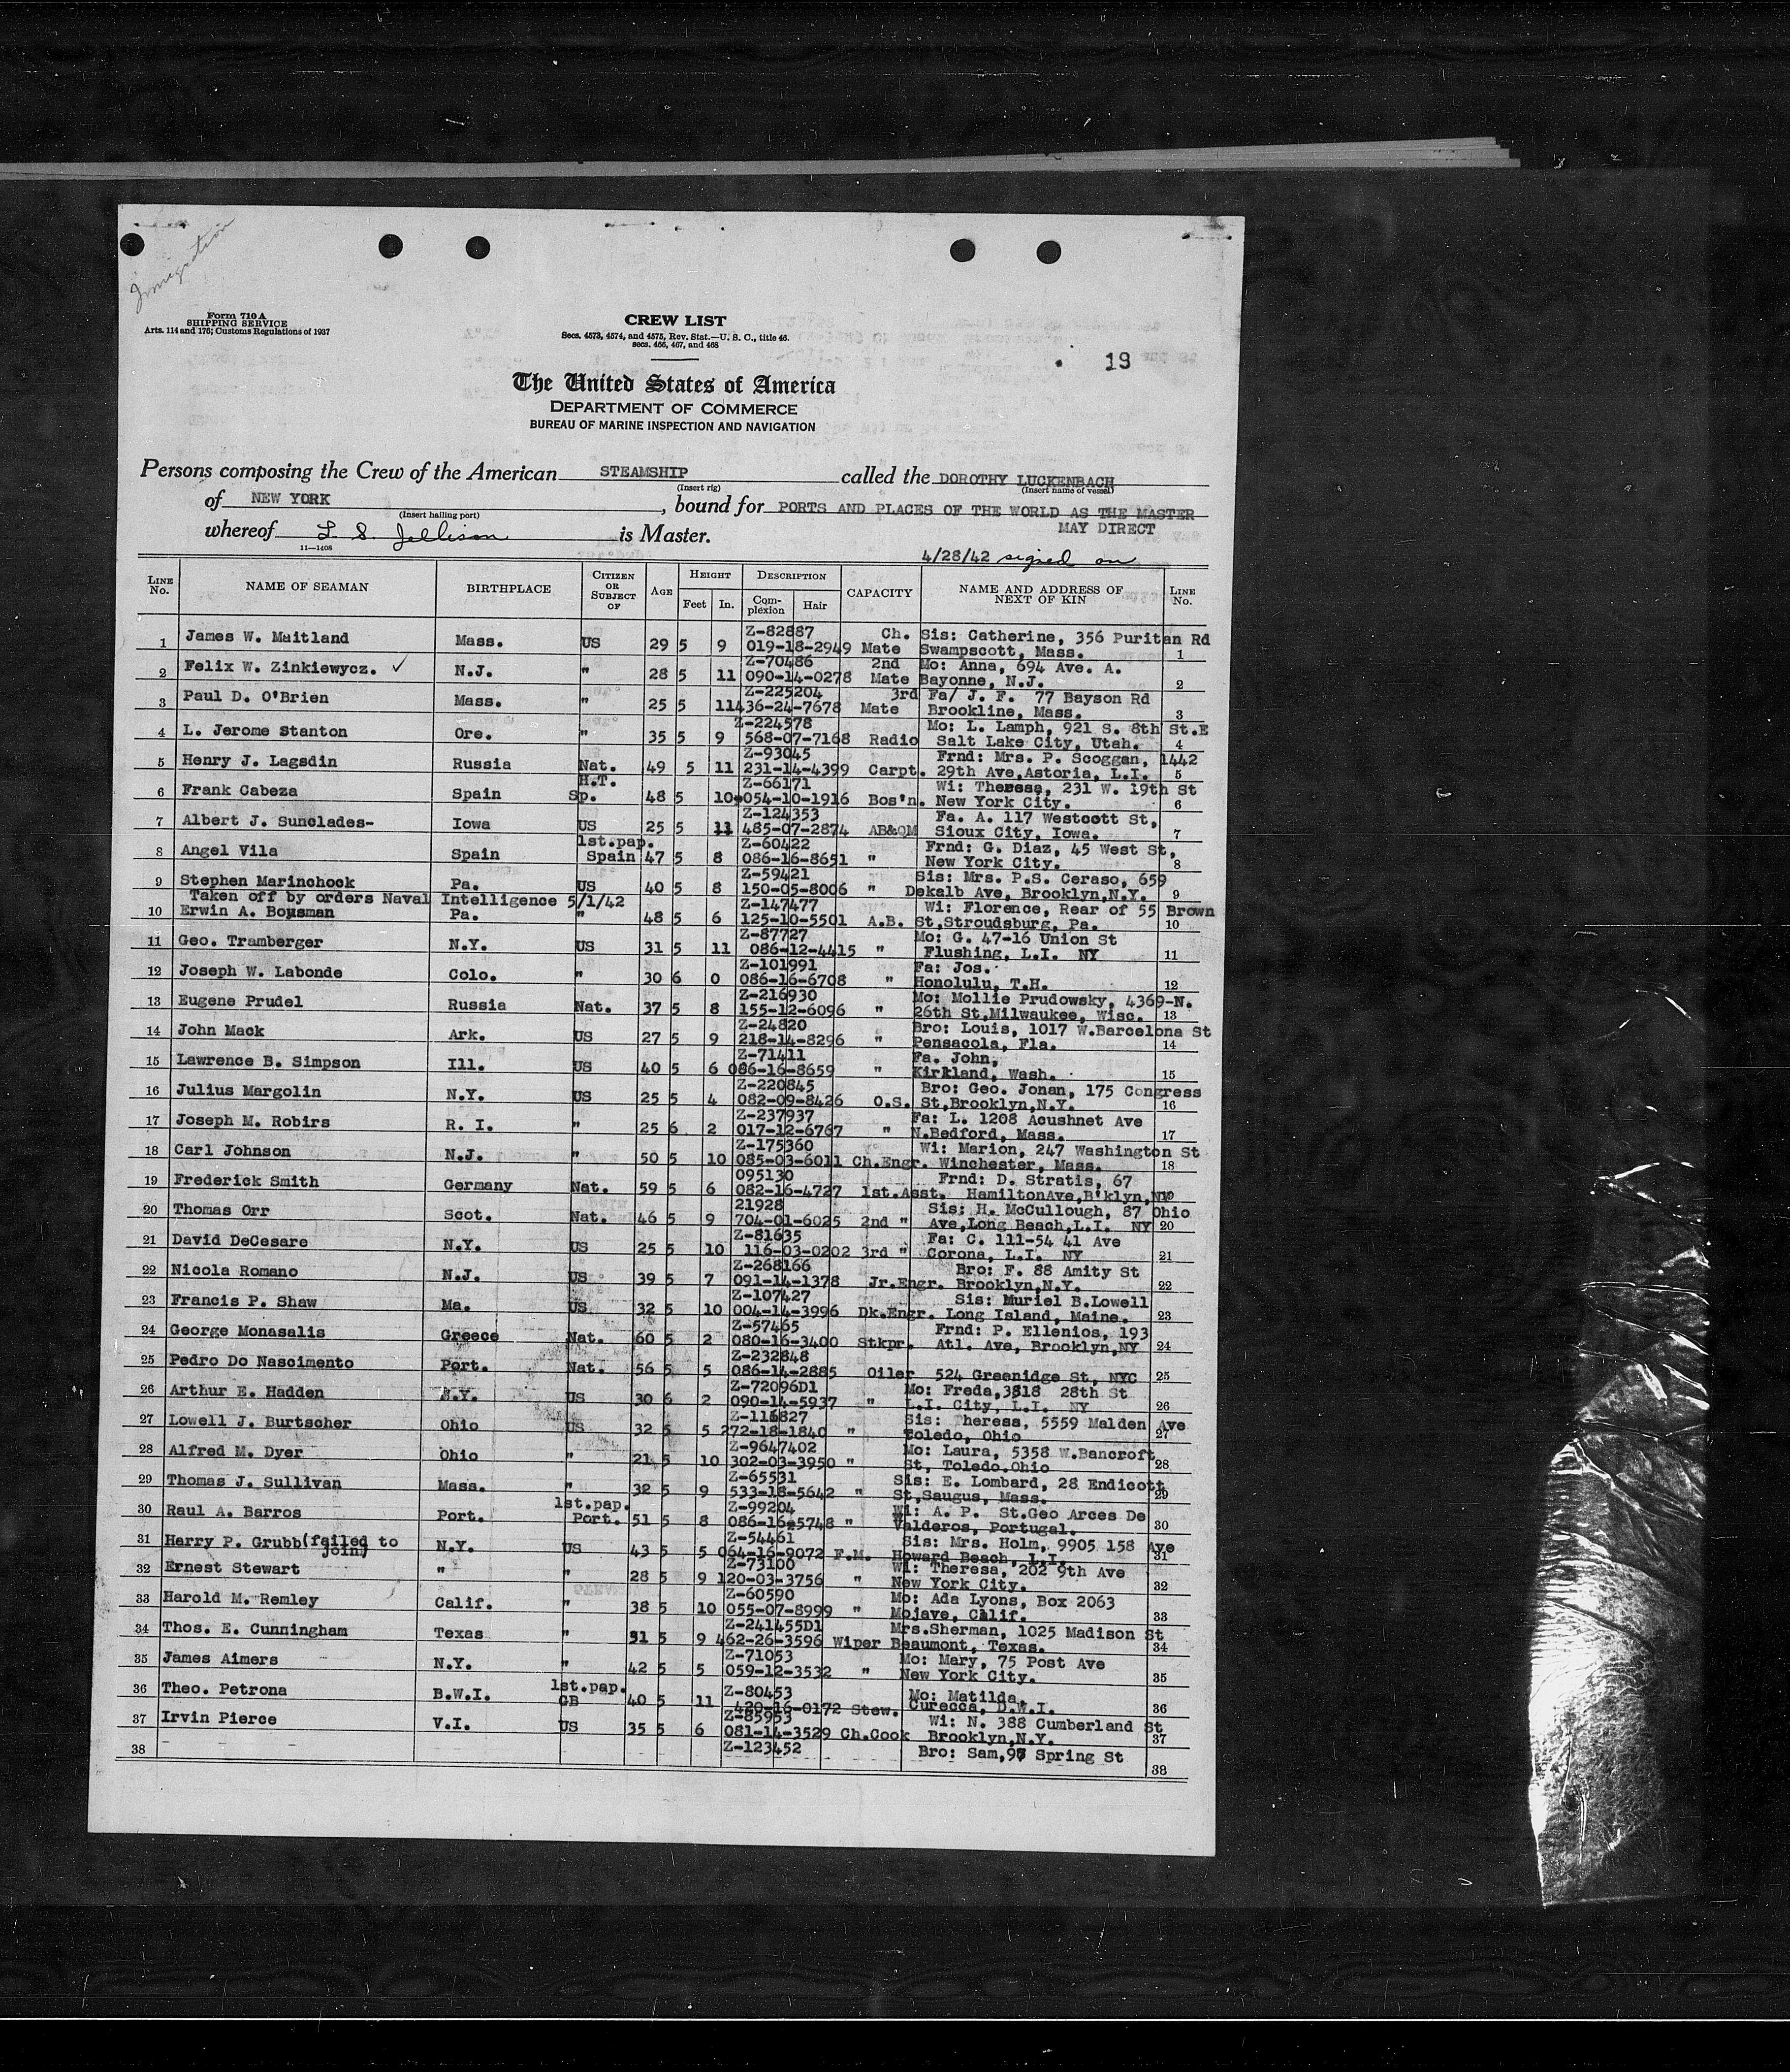 Immigration
Form 710 A
SHIPPING SERVICE
Arts. 114 and 176; Customs Regulations of 1937
CREW LIST
Secs. 4573, 4574, and 4575, Rev. Stat.—U. S. C., title 46.
secs. 466, 467, and 468
19
The United States of America
DEPARTMENT OF COMMERCE
BUREAU OF MARINE INSPECTION AND NAVIGATION
Persons composing the Crew of the American STEAMSHIP called the DOROTHY LUCKENBACH
(Insert rig) (Insert name of vessel)
of NEW YORK , bound for PORTS AND PLACES OF THE WORLD AS THE MASTER
(Insert hailing port) MAY DIRECT
whereof L. S. Jellison is Master.
11—1408
4/28/42 signed on
LINE No. NAME OF SEAMAN BIRTHPLACE CITIZEN OR SUBJECT OF AGE HEIGHT Feet In. DESCRIPTION Complexion Hair CAPACITY NAME AND ADDRESS OF NEXT OF KIN LINE No.
Z-82887 Ch. Sis: Catherine, 356 Puritan Rd
1 James W. Maitland Mass. US 29 5 9 019-18-2949 Mate Swampscott, Mass. 1
Z-70486 2nd Mo: Anna, 694 Ave. A.
2 Felix W. Zinkiewycz. ✓ N.J. " 28 5 11 090-14-0278 Mate Bayonne, N.J. 2
Z-225204 3rd Fa/ J. F. 77 Bayson Rd
3 Paul D. O'Brien Mass. " 25 5 11 436-24-7678 Mate Brookline, Mass. 3
Z-224578 Mo: L. Lamph, 921 S. 8th St.E
4 L. Jerome Stanton Ore. " 35 5 9 568-07-7168 Radio Salt Lake City, Utah. 4
Z-93045 Frnd: Mrs. P. Scoggan, 1442
5 Henry J. Lagsdin Russia Nat. 49 5 11 231-14-4399 Carpt. 29th Ave,Astoria, L.I. 5
H.T. Z-66171 Wi: Theresa, 231 W. 19th St
6 Frank Cabeza Spain Sp. 48 5 10 054-10-1916 Bos'n. New York City. 6
Z-124353 Fa. A. 117 Westcott St,
7 Albert J. Sunclades- Iowa US 25 5 11 485-07-2874 AB&QM Sioux City, Iowa. 7
1st.pap. Z-60422 Frnd: G. Diaz, 45 West St,
8 Angel Vila Spain Spain 47 5 8 086-16-8651 " New York City. 8
Z-59421 Sis: Mrs. P.S. Ceraso, 659
9 Stephen Marinchock Pa. US 40 5 8 150-05-8006 " Dekalb Ave, Brooklyn,N.Y. 9
Taken off by orders Naval Intelligence 5/1/42 Z-147477 Wi: Florence, Rear of 55 Brown
10 Erwin A. Bousman Pa. " 48 5 6 125-10-5501 A.B. St,Stroudsburg, Pa. 10
Z-87727 Mo: G. 47-16 Union St
11 Geo. Tramberger N.Y. US 31 5 11 086-12-4415 " Flushing, L.I. NY 11
Z-101991 Fa: Jos.
12 Joseph W. Labonde Colo. " 30 6 0 086-16-6708 " Honolulu, T.H. 12
Z-216930 Mo: Mollie Prudowsky, 4369-N.
13 Eugene Prudel Russia Nat. 37 5 8 155-12-6096 " 26th St,Milwaukee, Wisc. 13
Z-24820 Bro: Louis, 1017 W.Barcelona St
14 John Mack Ark. US 27 5 9 218-14-8296 " Pensacola, Fla. 14
Z-71411 Fa. John,
15 Lawrence B. Simpson Ill. US 40 5 6 086-16-8659 " Kirkland, Wash. 15
Z-220845 Bro: Geo. Jonan, 175 Congress
16 Julius Margolin N.Y. US 25 5 4 082-09-8426 O.S. St,Brooklyn,N.Y. 16
Z-237937 Fa: L. 1208 Acushnet Ave
17 Joseph M. Robirs R. I. " 25 6 2 017-12-6767 " N.Bedford, Mass. 17
Z-175360 Wi: Marion, 247 Washington St
18 Carl Johnson N.J. " 50 5 10 085-03-6011 Ch.Engr. Winchester, Mass. 18
095130 Frnd: D. Stratis, 67
19 Frederick Smith Germany Nat. 59 5 6 082-16-4727 1st.Asst. HamiltonAve,B'klyn,NY 19
21928 Sis: H. McCullough, 87 Ohio
20 Thomas Orr Scot. Nat. 46 5 9 704-01-6025 2nd " Ave,Long Beach,L.I. NY 20
Z-81635 Fa: C. 111-54 41 Ave
21 David DeCesare N.Y. US 25 5 10 116-03-0202 3rd " Corona, L.I. NY 21
Z-268166 Bro: F. 88 Amity St
22 Nicola Romano N.J. US 39 5 7 091-14-1378 Jr.Engr. Brooklyn,N.Y. 22
Z-107427 Sis: Muriel B.Lowell
23 Francis P. Shaw Ma. US 32 5 10 004-14-3996 Dk.Engr. Long Island, Maine. 23
Z-57465 Frnd: P. Ellenios, 193
24 George Monasalis Greece Nat. 60 5 2 080-16-3400 Stkpr. Atl. Ave, Brooklyn,NY 24
Z-232848
25 Pedro Do Nascimento Port. Nat. 56 5 5 086-14-2885 Oiler 524 Greenidge St, NYC 25
Z-72096D1 Mo: Freda,3818 28th St
26 Arthur E. Hadden N.Y. US 30 6 2 090-14-5937 " L.I. City, L.I. NY 26
Z-116827 Sis: Theresa, 5559 Malden Ave
27 Lowell J. Burtscher Ohio US 32 5 5 272-18-1840 " Toledo, Ohio 27
Z-9647402 Mo: Laura, 5358 W.Bancroft
28 Alfred M. Dyer Ohio " 21 5 10 302-03-3950 " St, Toledo.Ohio 28
Z-65531 Sis: E. Lombard, 28 Endicott
29 Thomas J. Sullivan Mass. " 32 5 9 533-18-5642 " St,Saugus, Mass. 29
1st.pap. Z-99204 Wi: A. P. St.Geo Arces De
30 Raul A. Barros Port. Port. 51 5 8 086-16-5748 " Valderos, Portugal. 30
Z-54461 Sis: Mrs. Holm, 9905 158 Ave
31 Harry P. Grubb(failed to join) N.Y. US 43 5 5 064-16-9072 F.M. Howard Beach, L.I. 31
Z-73100 Wi: Theresa, 202 9th Ave
32 Ernest Stewart " " 28 5 9 120-03-3756 " New York City. 32
Z-60590 Mo: Ada Lyons, Box 2063
33 Harold M. Remley Calif. " 38 5 10 055-07-8999 " Mojave, Calif. 33
Z-241455D1 Mrs.Sherman, 1025 Madison St
34 Thos. E. Cunningham Texas " 31 5 9 462-26-3596 Wiper Beaumont, Texas. 34
Z-71053 Mo: Mary, 75 Post Ave
35 James Aimers N.Y. " 42 5 5 059-12-3532 " New York City. 35
1st.pap. Z-80453 Mo: Matilda,
36 Theo. Petrona B.W.I. GB 40 5 11 420-16-0172 Stew. Curecca, D.W.I. 36
Z-85953 Wi: N. 388 Cumberland St
37 Irvin Pierce V.I. US 35 5 6 081-14-3529 Ch.Cook Brooklyn,N.Y. 37
Z-123452 Bro: Sam,97 Spring St
38 38